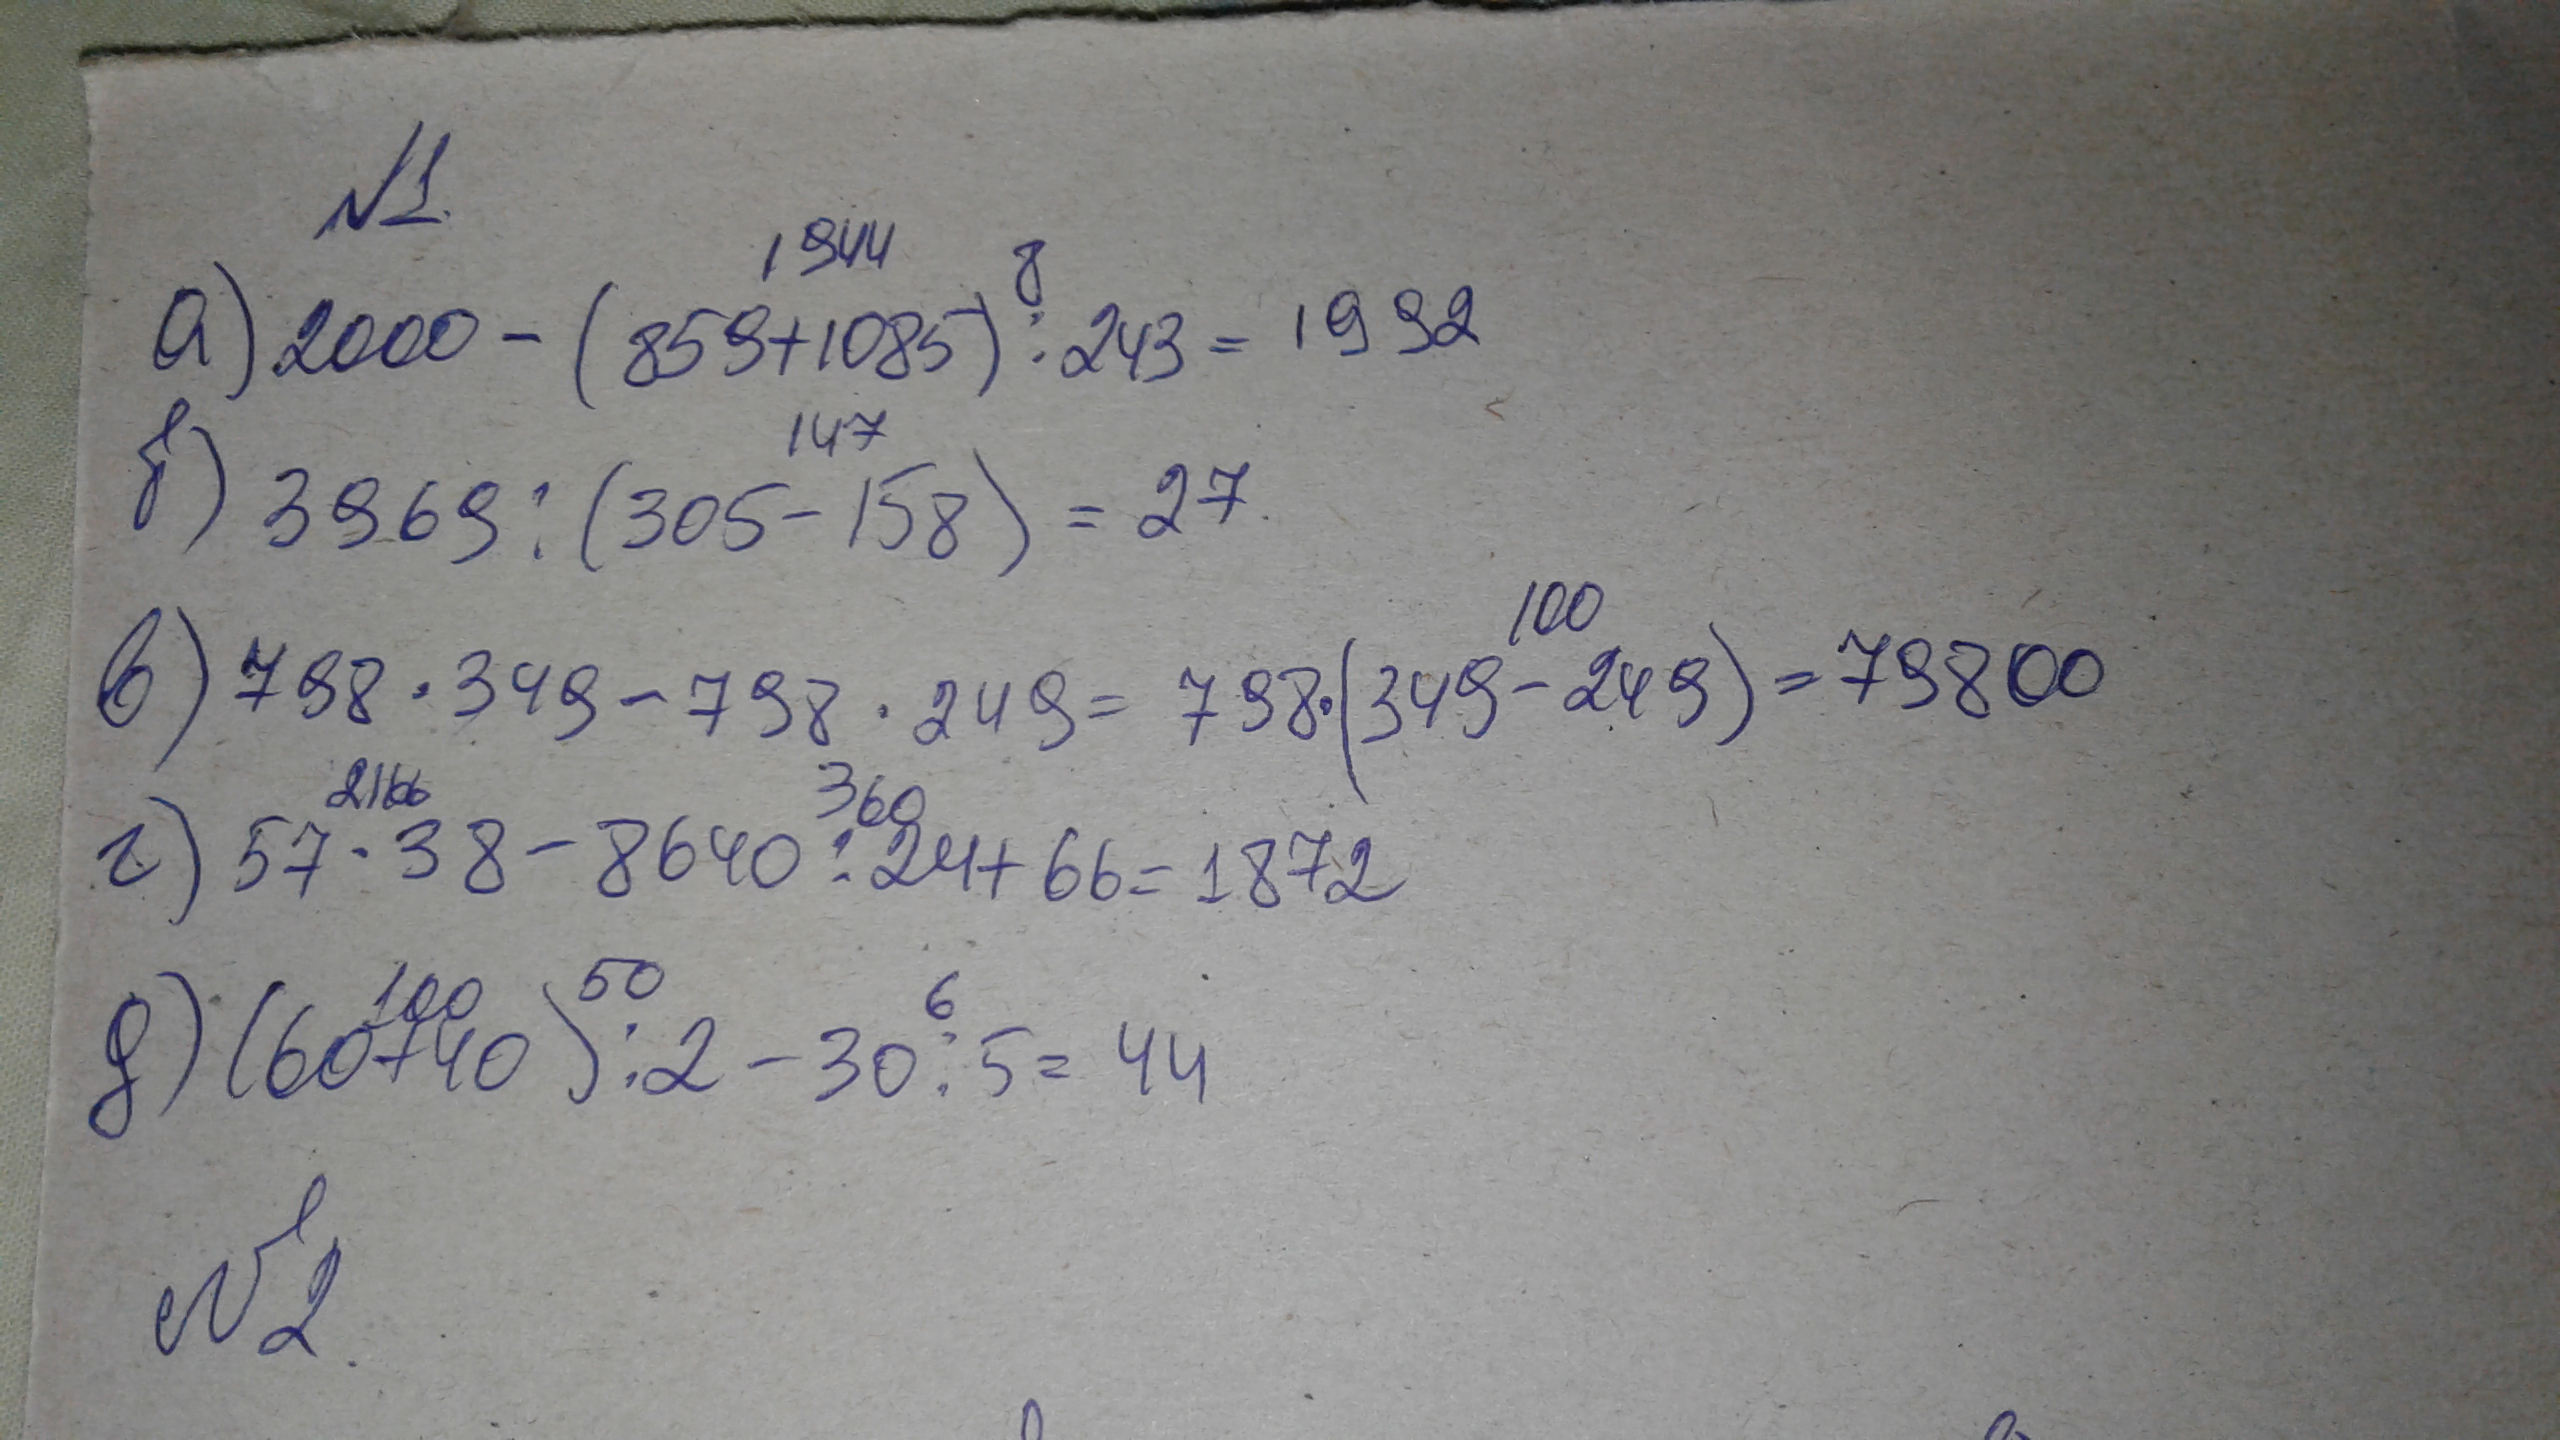 №1.
1944 8
а) 2000 - (859+1085) : 243 = 1992
147
б) 3969 : (305 - 158) = 27.
100
в) 798 · 349 - 798 · 249 = 798·(349 - 249) = 79800
2166 360
г) 57 · 38 - 8640 : 24 + 66 = 1872
100 50 6
д) (60+40) : 2 - 30 : 5 = 44
№2.